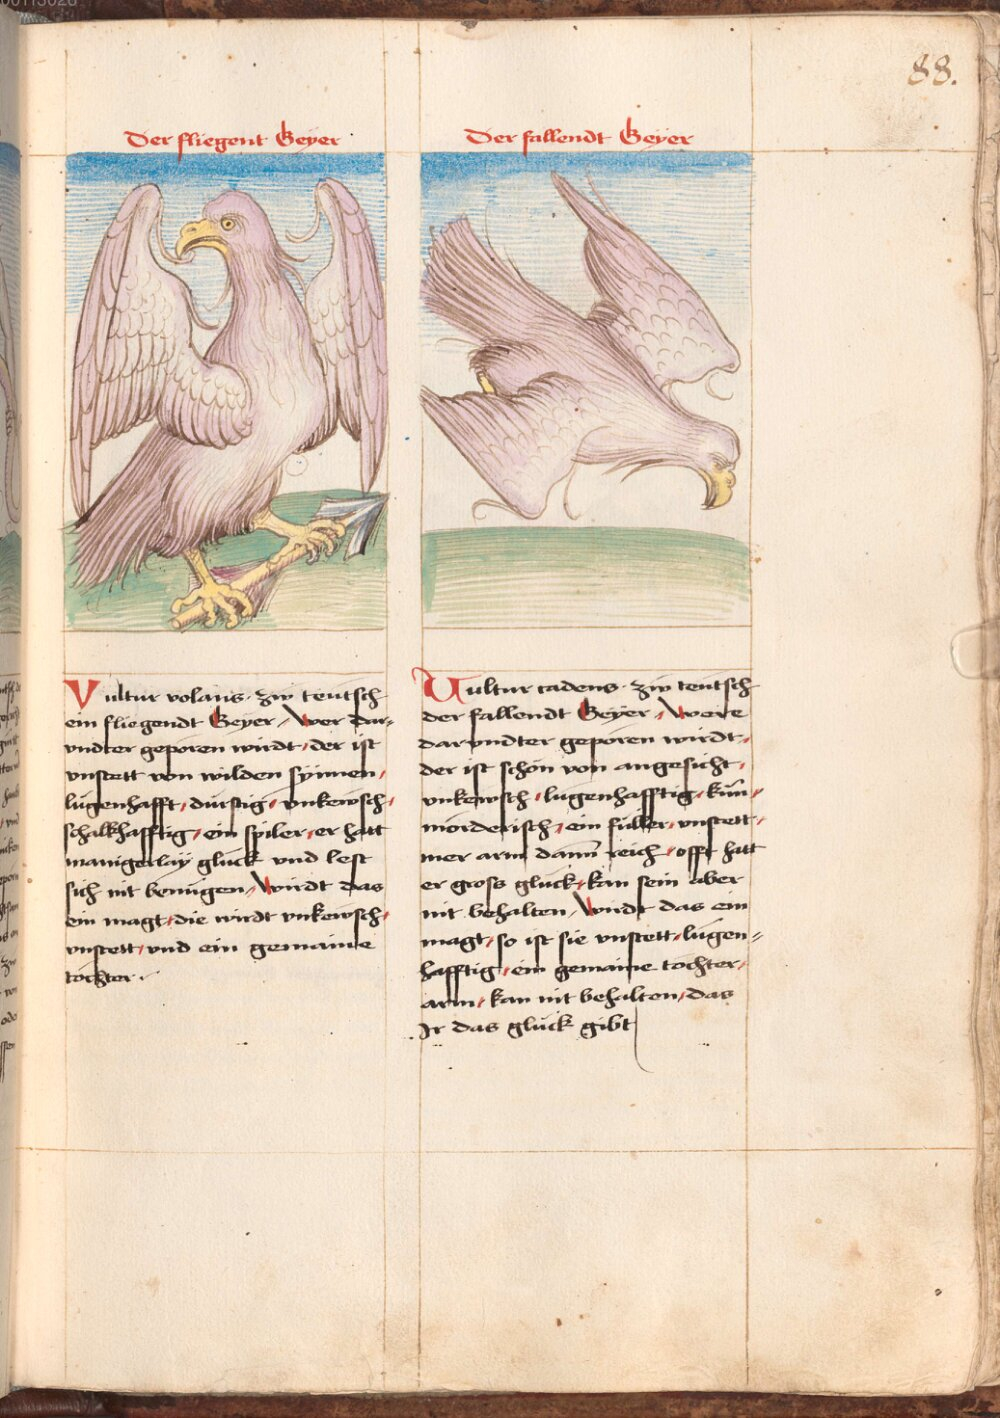 88.
Der fliegent Geyer
Vultur volans · zw teutsch
ein fliegendt Geyer / Wer dar=
vndter geporen wirdt / der ist
vnstett von wilden synnen /
lugenhafft / durstig / vnkewsch /
schalkhafftig / ein spiler / er hatt
manigerlay gluck vnd lest
sich nit benugen / Wirdt das
ein magt / die wirdt vnkewsch /
vnstett / vnd ein gemaine
tochter .
Der fallendt Geyer
Uultur cadens · zw teutsch
der fallendt Geyer / Were
darundter geporen wirdt /
der ist schon von angesicht /
vnkewsch / lugenhafftig / kün /
mörderisch / ein füller / vnstett /
mer arm dann reich / offt hatt
er gross gluck / kan sein aber
nit behalten / Wirdt das ein
magt / so ist sie vnstett / lugen=
hafftig / ein gemaine tochter /
arm / kan nit behalten / das
Ir das gluck gibt